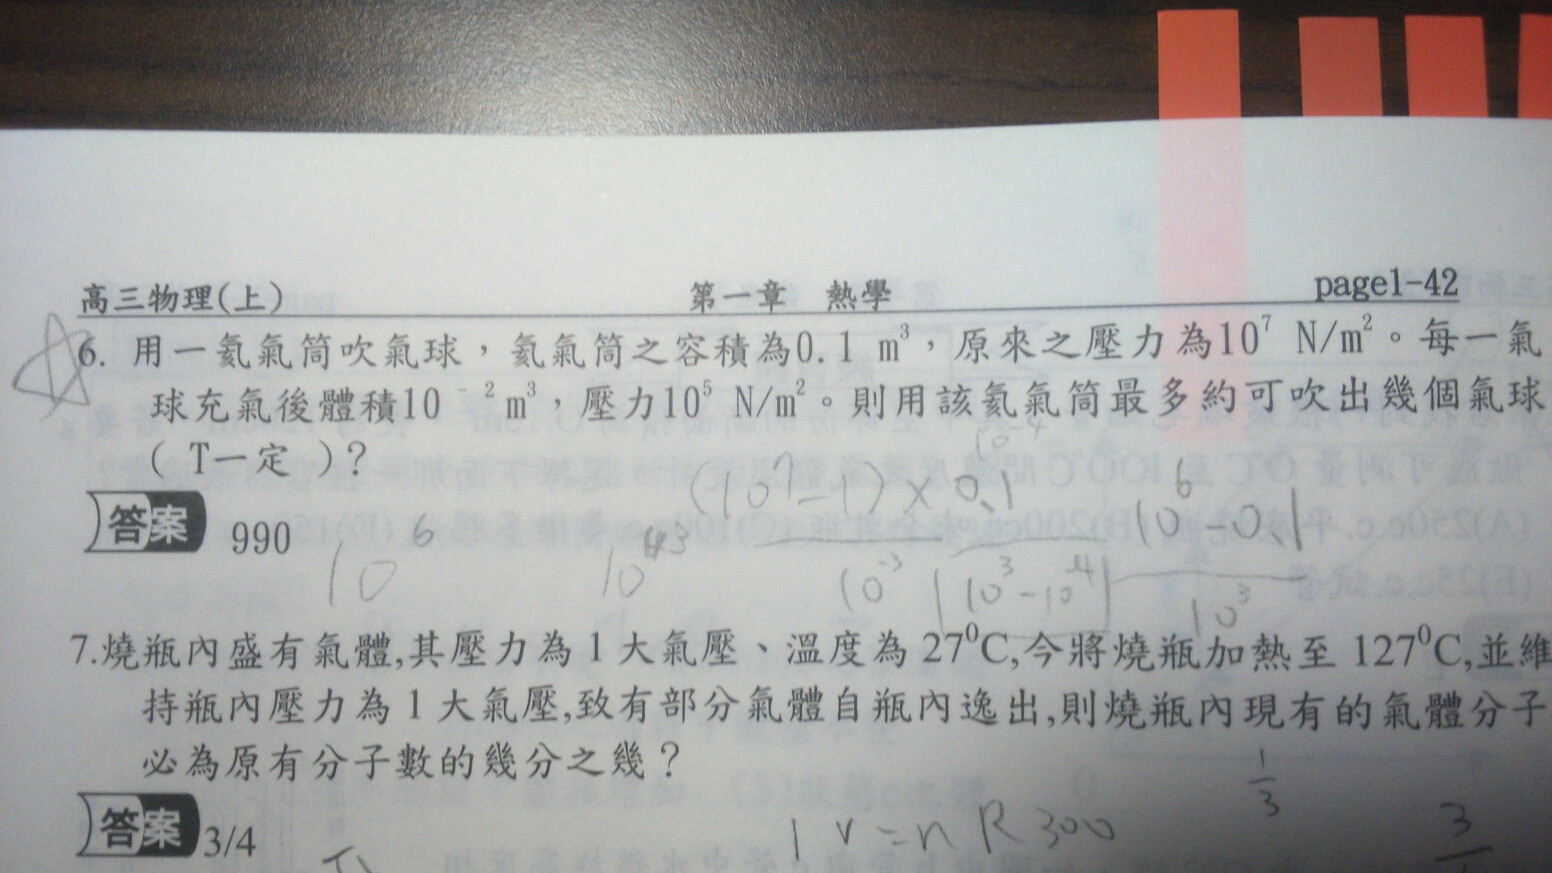 高三物理(上) 第一章 熱學 page1-42
6. 用一氦氣筒吹氣球，氦氣筒之容積為0.1 m³，原來之壓力為10⁷ N/m²。每一氣
球充氣後體積10⁻²m³，壓力10⁵ N/m²。則用該氦氣筒最多約可吹出幾個氣球
( T一定 )？
答案 990
10⁶
10⁻³
10³-10⁻⁴
10⁶-0.1
10³
7.燒瓶內盛有氣體,其壓力為 1 大氣壓、溫度為 27⁰C,今將燒瓶加熱至 127⁰C,並維
持瓶內壓力為 1 大氣壓,致有部分氣體自瓶內逸出,則燒瓶內現有的氣體分子
必為原有分子數的幾分之幾？
1/3
答案 3/4
1 V = n R 300